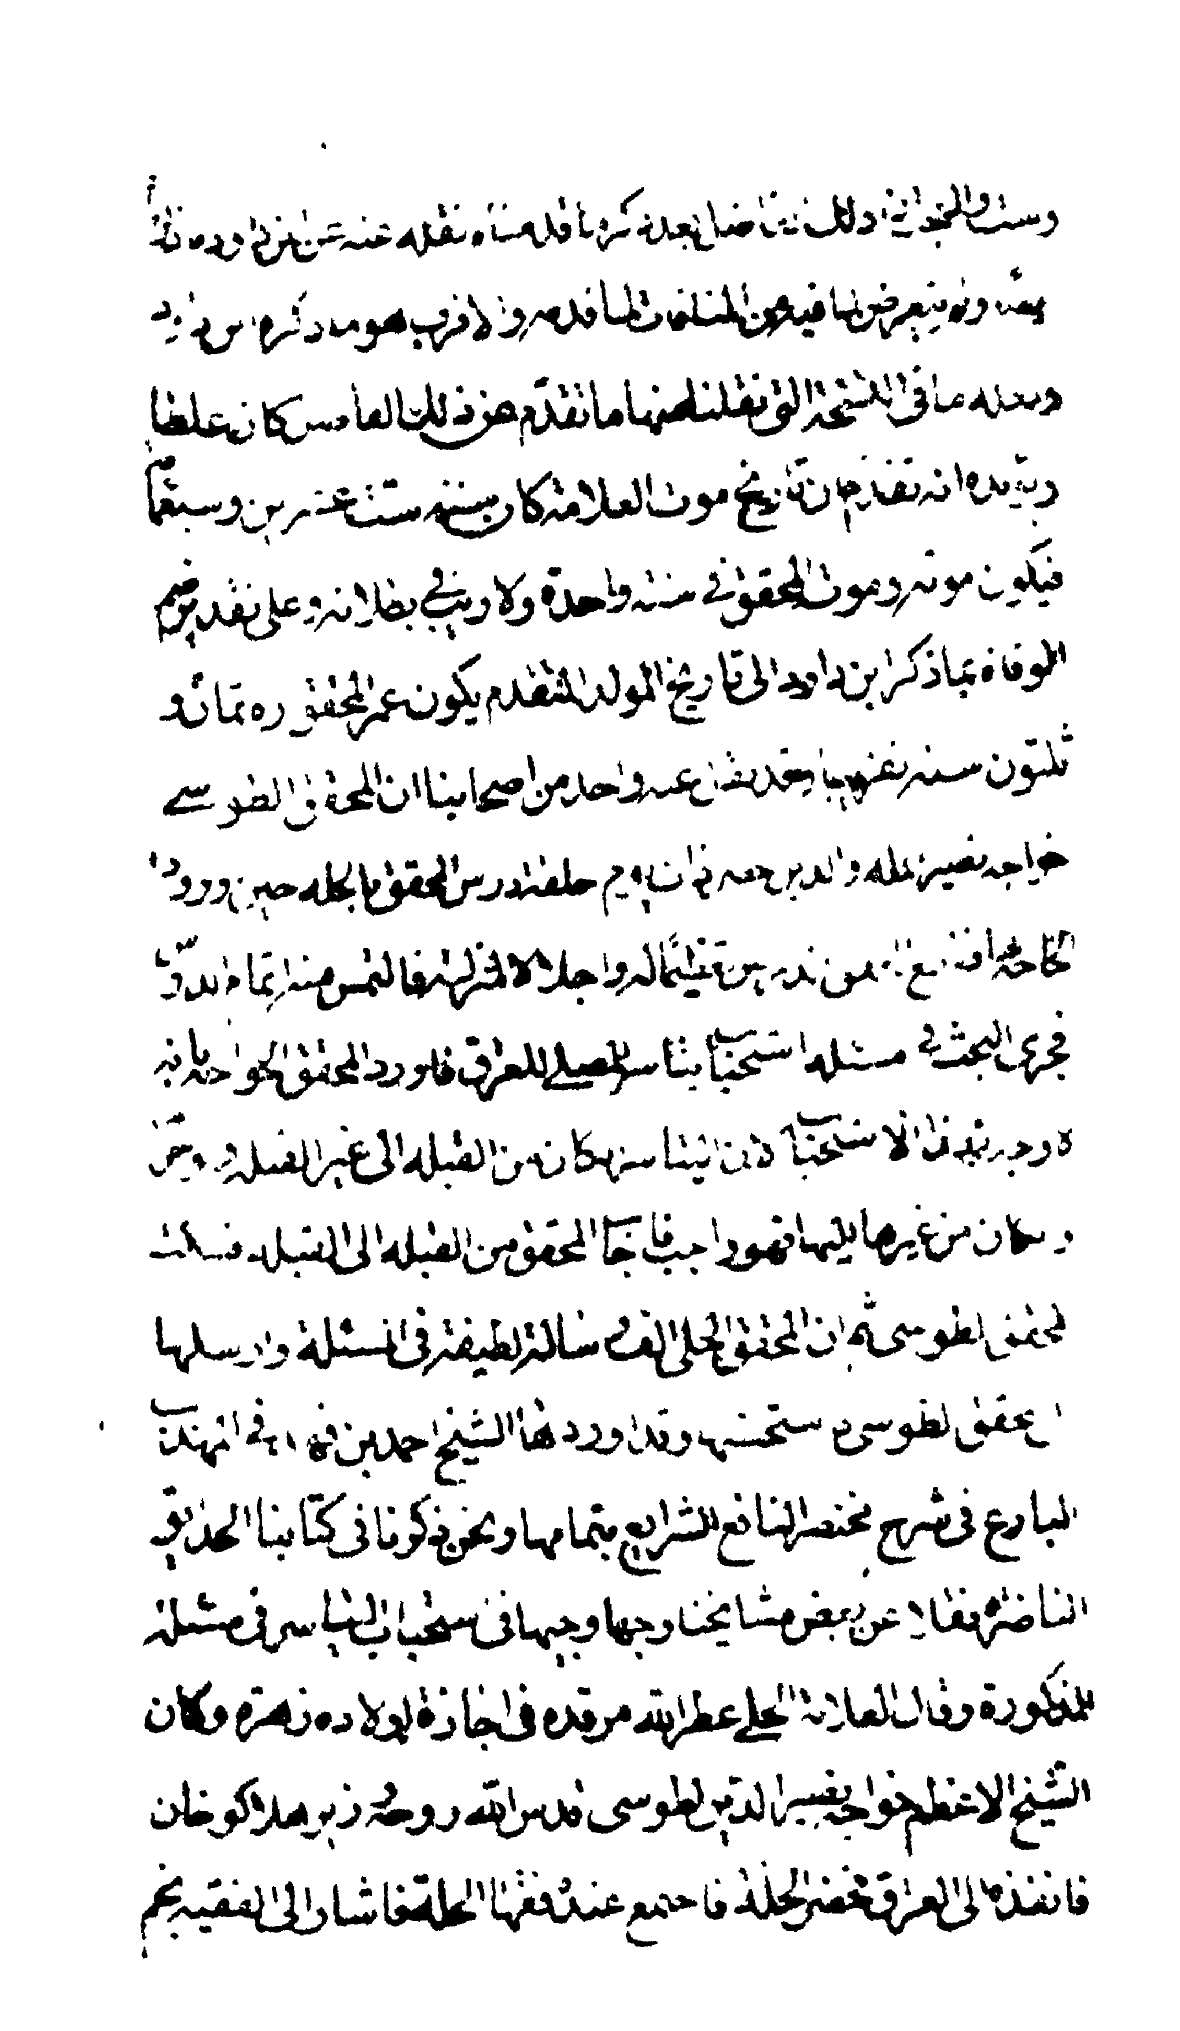 وستين والعجب انه في ذلك فاضل بعد ذكره ما قدمناه نقله عنه عن ابن داود قال
ثمة ولم يتعرض لما فيه من المنافات لما قدمه والاقرب هو ما ذكره ابن داود
ولعله ما في النسخة التي نقلنا منها ما تقدم من ذلك العام كان غلطا
ويؤيده انه تقدم ان تاريخ موت العلامة كان سنة ست عشرين وسبعمائة
فيكون موته وموت المحقق في سنة واحدة ولا ريب في بطلانه وعلى تقدير ضم
الوفاة بما ذكر ابن داود الى تاريخ المولد المتقدم يكون عمر المحقق ره ثمان و
ثلثون سنة تقريبا وقد نقل غير واحد من اصحابنا ان المحقق الطوسي
خواجه نصير الملة والدين حضر ذات يوم حلقة درس المحقق بالحلة حين ورود
المحقق تدريسه تعظيما له واجلالا لمنزلته فالتمس منه اتمام الدرس
فجرى البحث في مسئلة استحباب تياسر المصلي للعراق فاورد المحقق الخواجه بانه
لا وجه لهذا الاستحباب لان التياسر ان كان من القبلة الى غير القبلة فهو حرام
وان كان من غيرها اليها فهو واجب فاجاب المحقق من القبلة الى القبلة فسكت
المحقق الطوسي ثم ان المحقق الحلي الف رسالة لطيفة في المسئلة وارسلها
الى المحقق الطوسي فاستحسنها وقد اوردها الشيخ احمد بن فهد في المهذب
البارع في شرح مختصر النافع الشرايع بتمامها ونحن ذكرنا في كتابنا الحدايق
الناضرة نقلا عن بعض مشايخنا وجها وجيها في استحباب التياسر في مسئلة
المذكورة وقال العلامة الحلي عطر الله مرقده في اجازة لاولاد زهرة وكان
الشيخ الاعظم خواجه نصير الدين الطوسي قدس الله روحه وزير هلاكو خان
فانفذه الى العراق فحضر الحلة فاجتمع عنده فقهاء الحلة فاشار الى الفقيه نجم